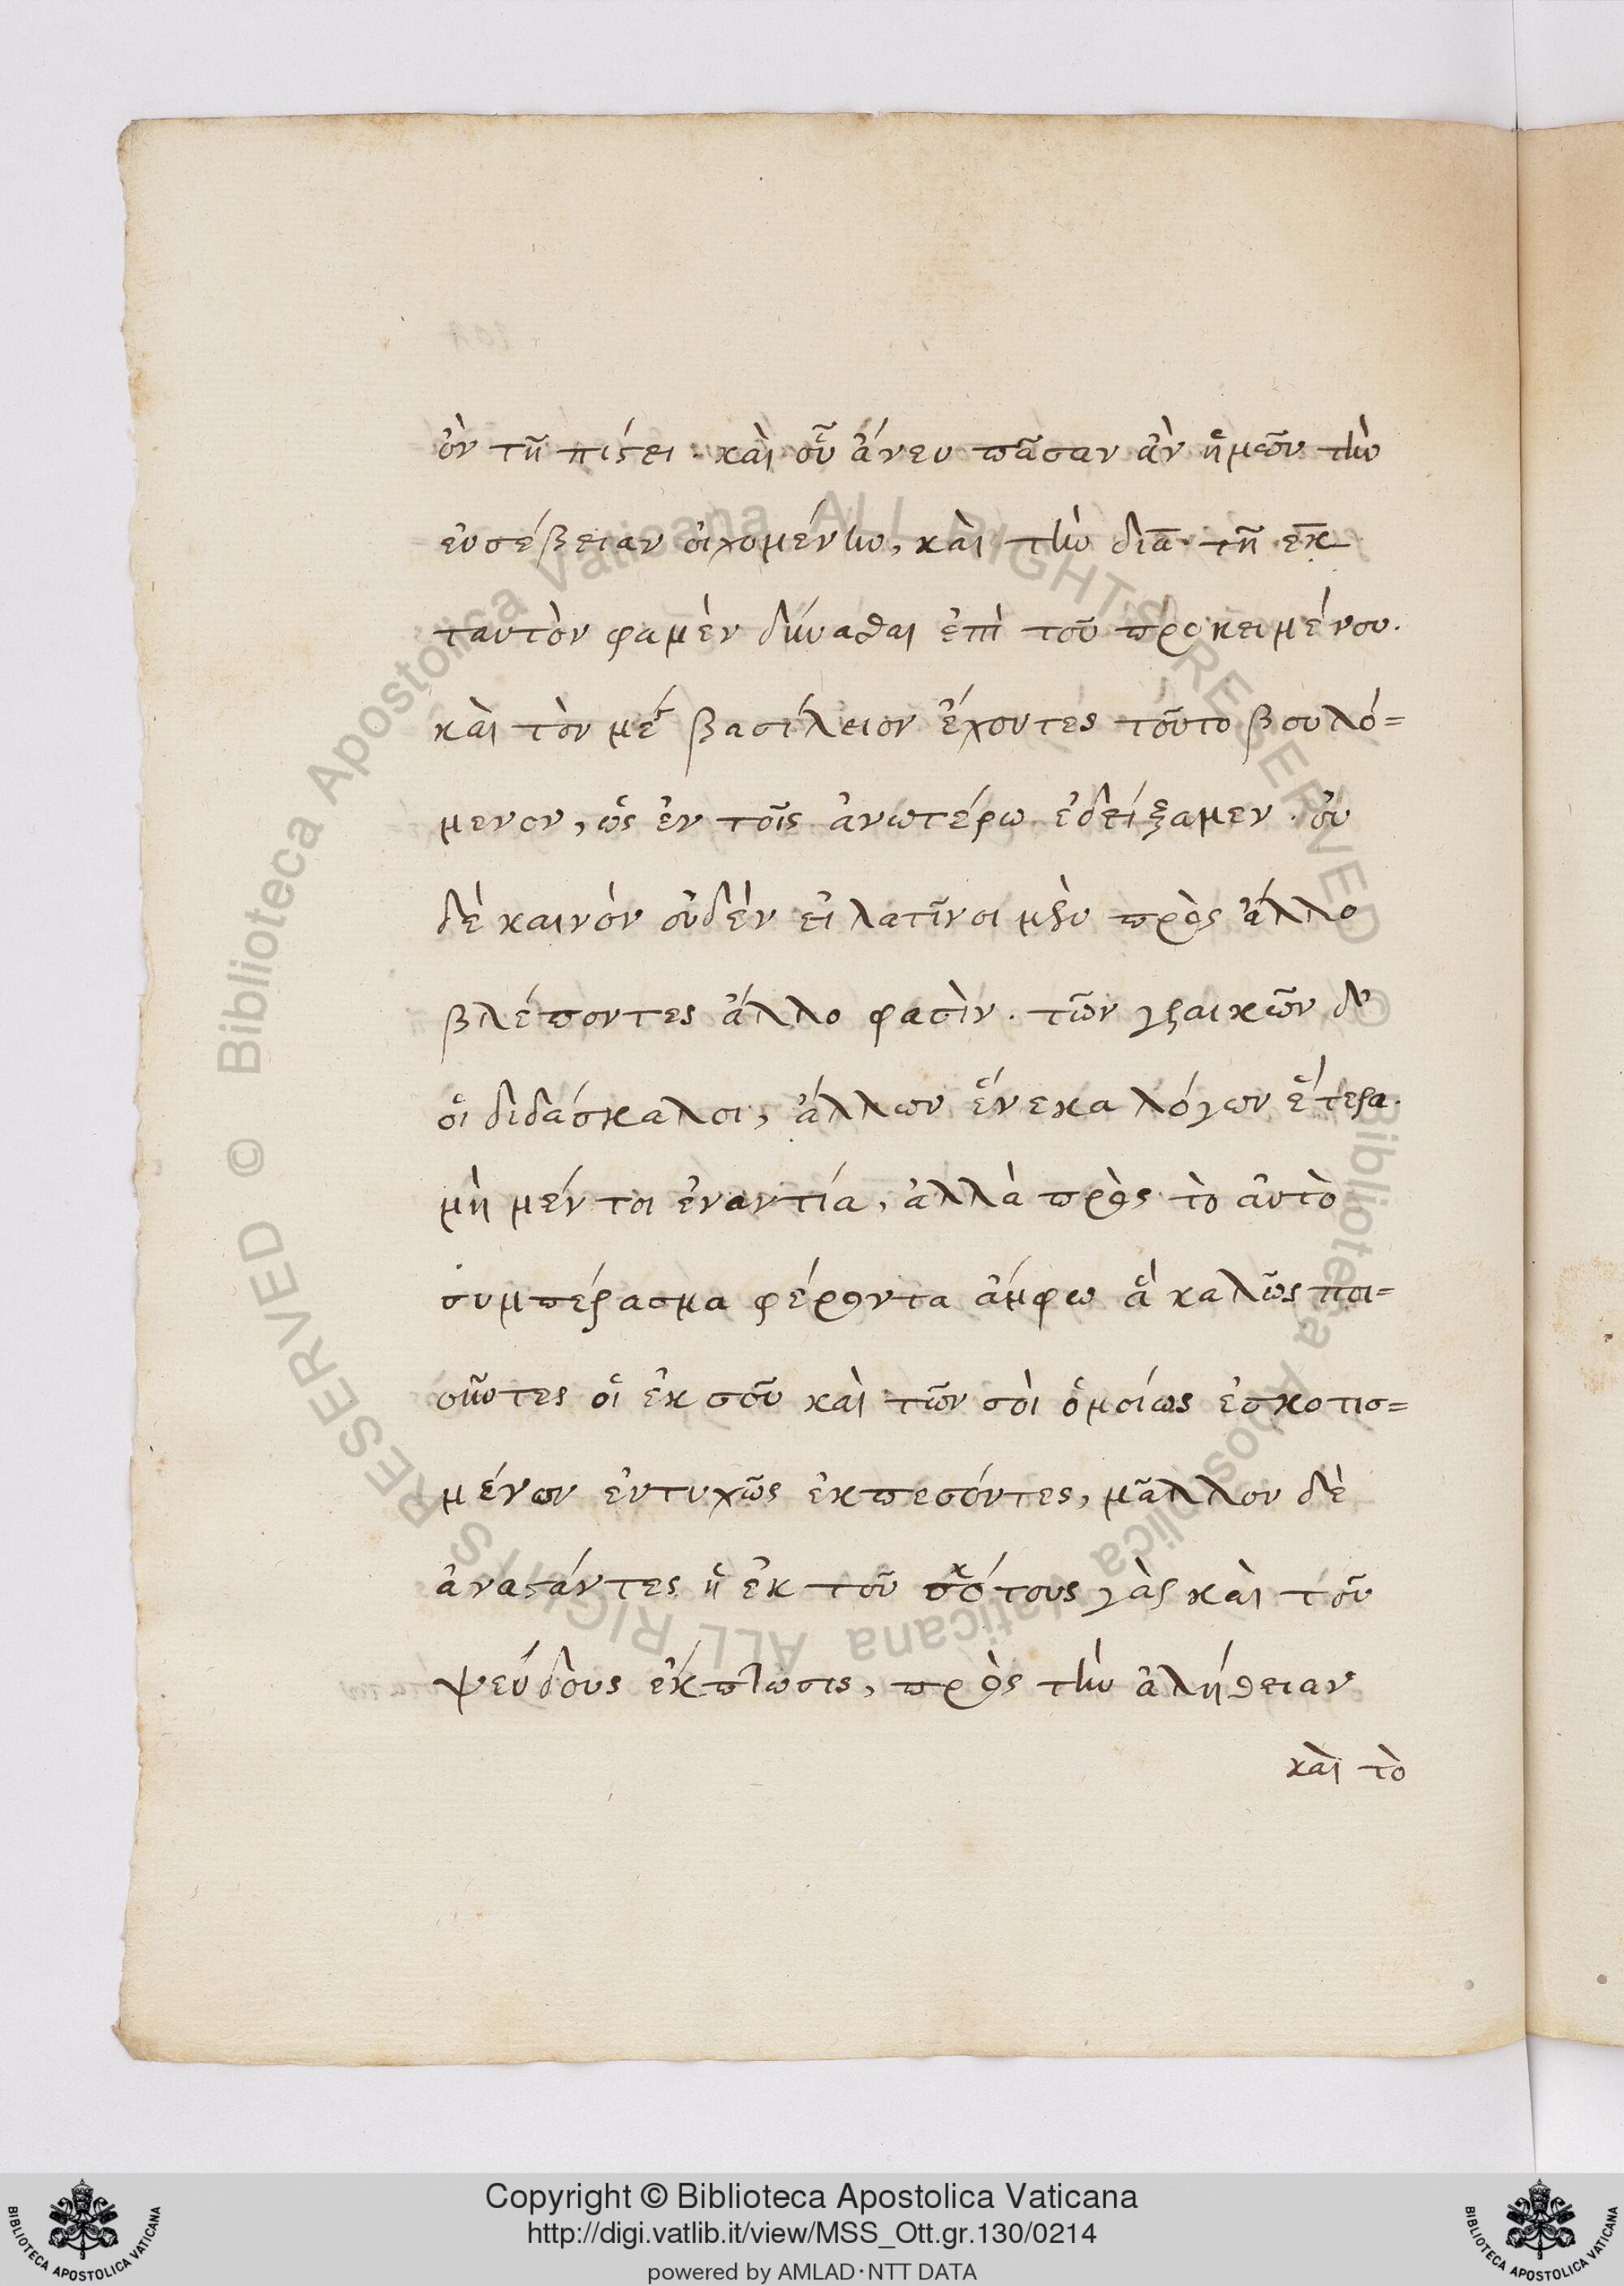 ὂν τῆ πίστει. καὶ οὗ ἄνευ πᾶσαν ἂν ἡμῶν τὴν
εὐσέβειαν οἰχομένην, καὶ τὴν δια τῆ εκ
ταυτὸν φαμὲν δύνασθαι ἐπὶ τοῦ προκειμένου.
καὶ τὸν βασίλειον ἔχοντες τοῦτο βουλό=
μενον, ὡς ἐν τοῖς ἀνωτέρω ἐδείξαμεν. οὐ
δὲ καινὸν οὐδὲν εἰ λατῖνοι μὲν πρὸς ἄλλο
βλέποντες ἄλλο φασὶν. τῶν γραικῶν δ'
οἱ διδάσκαλοι, ἄλλων ἕνεκα λόγων ἕτερα.
μὴ μέντοι ἐναντία, ἀλλὰ πρὸς τὸ αὐτὸ
συμπέρασμα φέροντα ἄμφω ἃ καλῶς ποι=
οῦντες οἱ ἐκ σοῦ καὶ τῶν σοὶ ὁμοίως ἐσκοτισ=
μένων εὐτυχῶς ἐκπεσόντες, μᾶλλον δὲ
ἀναστάντες ἡ ἐκ τοῦ σκότους γὰρ καὶ τοῦ
ψεύδους ἔκπτωσις, πρὸς τὴν ἀλήθειαν
καὶ τὸ
Copyright © Biblioteca Apostolica Vaticana
http://digi.vatlib.it/view/MSS_Ott.gr.130/0214
powered by AMLAD·NTT DATA